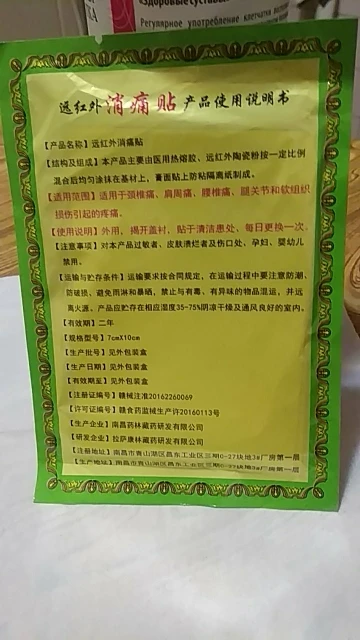 «Здоровые суставы
Регулярное употребление клетчатки
远红外消痛贴产品使用说明书
【产品名称】远红外消痛贴
【结构及组成】本产品主要由医用热熔胶、远红外陶瓷粉按一定比例
混合后均匀涂抹在基材上，膏面贴上防粘隔离纸制成。
【适用范围】适用于颈椎痛、肩周痛、腰椎痛、腿关节和软组织
损伤引起的疼痛。
【使用说明】外用，揭开盖衬，贴于清洁患处，每日更换一次。
【注意事项】对本产品过敏者、皮肤溃烂者及伤口处、孕妇、婴幼儿
禁用。
【运输与贮存条件】运输要求按合同规定，在运输过程中要注意防潮、
防破损、避免雨淋和暴晒，禁止与有毒、有异味的物品混运，并远
离火源。产品应贮存在相应湿度35-75%阴凉干燥及通风良好的室内。
【有效期】二年
【规格型号】7cmX10cm
【生产批号】见外包装盒
【生产日期】见外包装盒
【有效期至】见外包装盒
【注册证编号】赣械注准20162260069
【许可证编号】赣食药监械生产许20160113号
【生产企业】南昌药林藏药研发有限公司
【研发企业】拉萨康林藏药研发有限公司
【注册地址】南昌市青山湖区昌东工业区三期C-27块地3#厂房第一层
【生产地址】南昌市青山湖区昌东工业区三期C-27块地3#厂房第一层